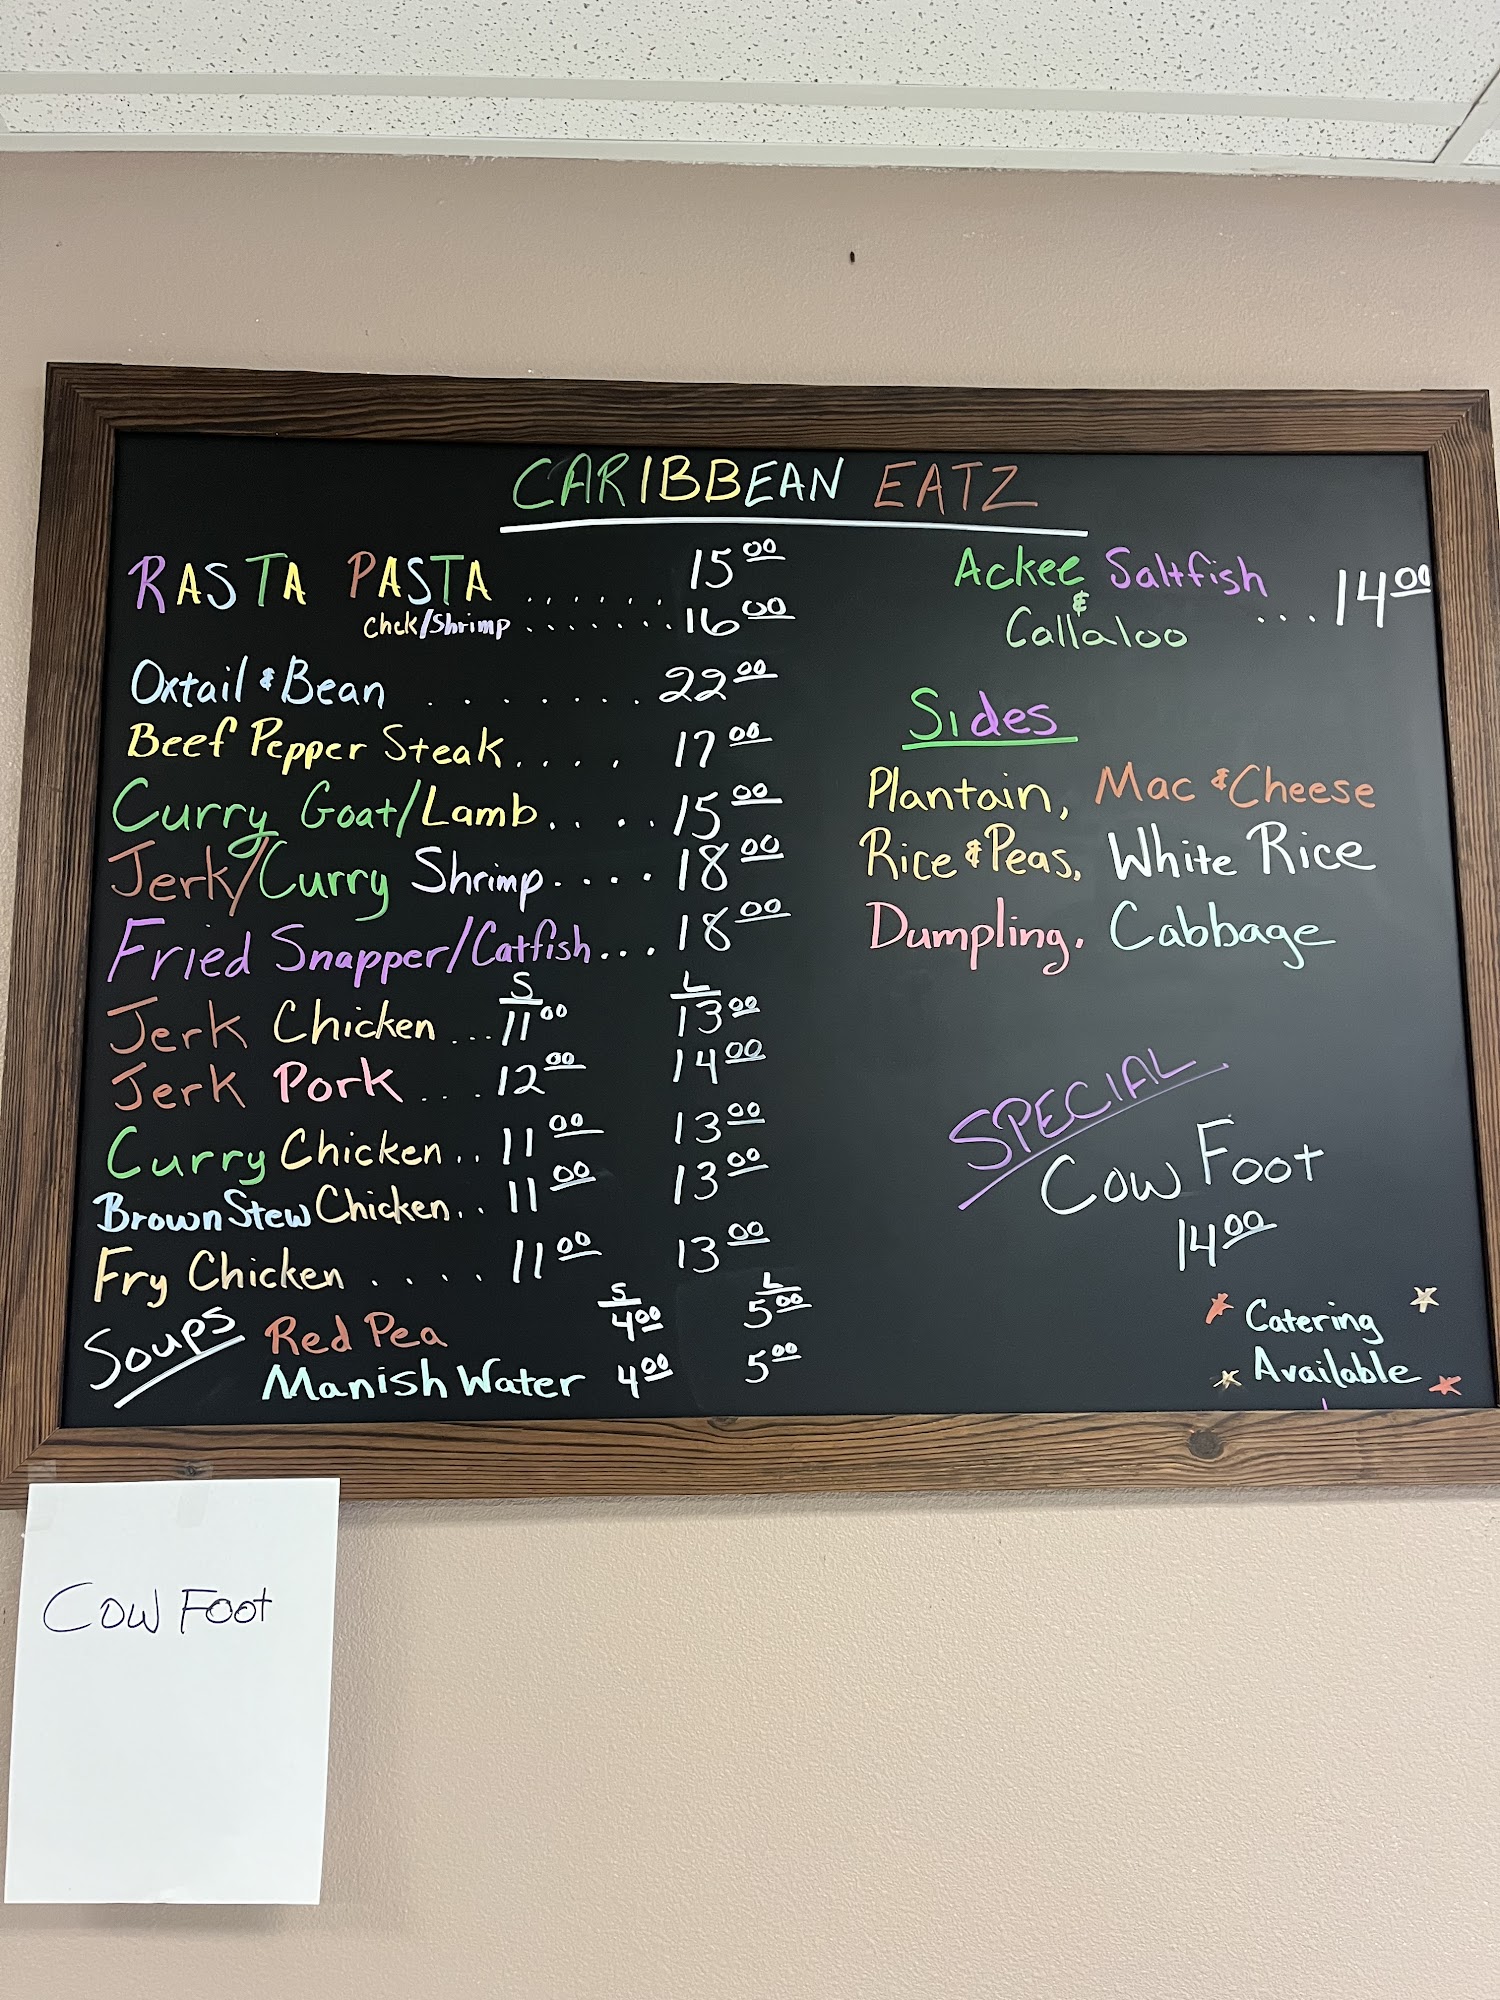 CARIBBEAN EATZ
RASTA PASTA ...... 15 00
Chck/Shrimp ....... 16 00
Oxtail & Bean ........ 22 00
Beef Pepper Steak.... 17 00
Curry Goat/Lamb.... 15 00
Jerk/Curry Shrimp.... 18 00
Fried Snapper/Catfish... 18 00
S L
Jerk Chicken ... 11 00 13 00
Jerk Pork ... 12 00 14 00
Curry Chicken .. 11 00 13 00
Brown Stew Chicken.. 11 00 13 00
Fry Chicken .... 11 00 13 00
S L
Soups Red Pea 4 00 5 00
Manish Water 4 00 5 00
Ackee Saltfish
& ... 14 00
Callaloo
Sides
Plantain, Mac & Cheese
Rice & Peas, White Rice
Dumpling, Cabbage
SPECIAL
Cow Foot
14 00
Catering
Available
Cow Foot